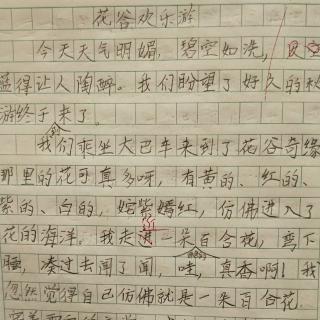 花谷欢乐游
今天天气明媚，碧空如洗，
蓝得让人陶醉。我们盼望了好久的秋
游终于来了。
我们乘坐大巴车来到了花谷奇缘
那里的花可真多呀，有黄的、红的、
紫的、白的，姹紫嫣红，仿佛进入了
花的海洋。我走近一朵百合花，弯下
腰，凑过去闻了闻，哇，真香啊！我
忽然觉得自己仿佛就是一朵百合花